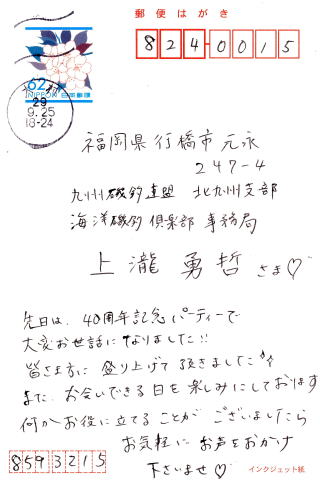 郵便はがき
824-0015
62
NIPPON 日本郵便
29
9.25
18-24
福岡県行橋市元永
247-4
九州磯釣連盟 北九州支部
海洋磯釣倶楽部 事務局
上瀧 勇哲 さま♡
先日は、40周年記念パーティーで
大変お世話になりました!!
皆さま方に 盛り上げて頂きました
また、お会いできる日を楽しみにしております
何かお役に立てることがございましたら
お気軽に お声をおかけ
下さいませ♡
8593215
インクジェット紙